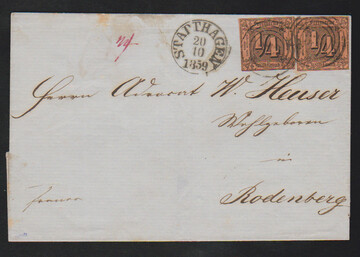 STADTHAGEN
20
10
1859
1/4 1/4
Herrn Advocat W. Heuser
Wohlgeboren
in
Rodenberg
franco